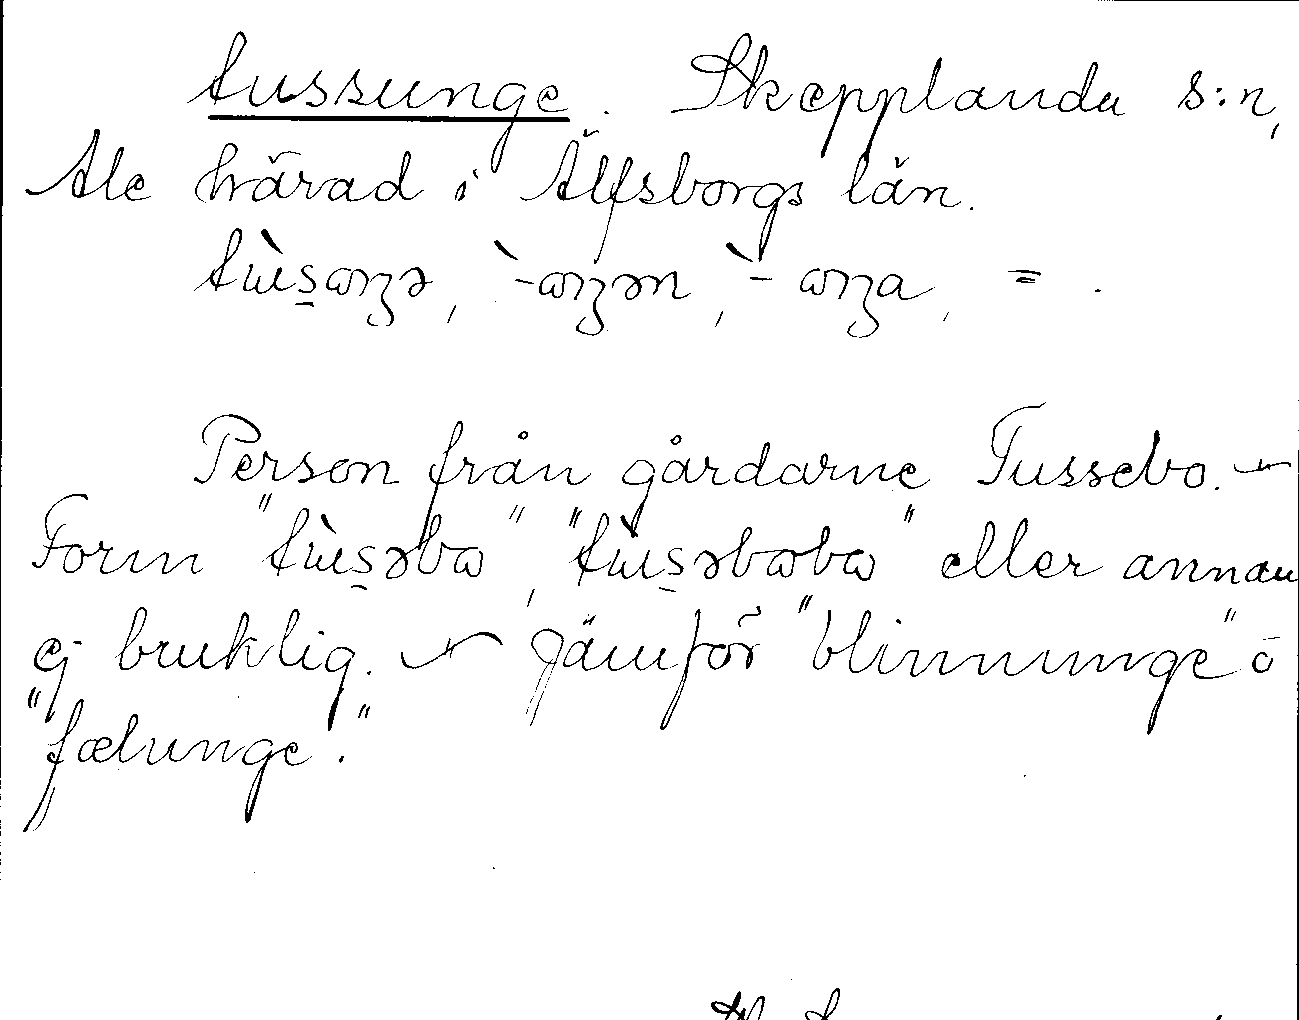 tussunge. Skepplanda s:n,
Ale härad i Älfsborgs län.
Person från gårdarne Tussebo. –
Form eller annan
ej bruklig. – Jämför "blinnunge" o
"fælunge."